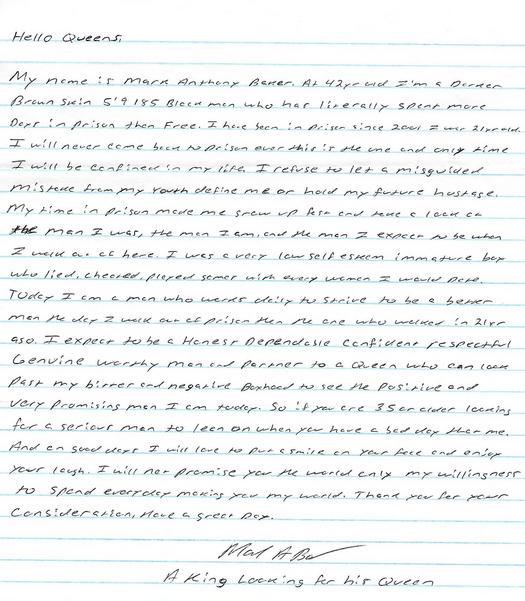 Hello Queens,
My name is Mark Anthony Baker. At 42yr old I'm a Darker
Brown Skin 5'9 185 Black man who has literally spent more
Days in prison then Free. I have been in prison since 2001 I was 21yr old.
I will never come back to prison ever this is the one and only time
I will be confined in my life. I refuse to let a misguided
mistake from my youth define me or hold my future hostage.
My time in prison made me grow up fast and take a look at
the man I was, the man I am, and the man I expect to be when
I walk out of here. I was a very low self esteem immature boy
who lied, cheated, played games with every women I would Date.
Today I am a man who works daily to strive to be a better
man the day I walk out of prison then the one who walked in 21yr
ago. I expect to be a Honest Dependable Confident respectful
Genuine worthy man and partner to a Queen who can look
Past my bitter and negative Boyhood to see the Positive and
very Promising man I am today. So if you are 35 or older looking
for a serious man to leen on when you have a bad day then me.
And on good days I will love to put a smile on your face and enjoy
your laugh. I will not promise you the world only my willingness
to spend everyday making you my world. Thank you for your
Consideration, Have a great Day.
A King Looking for his Queen